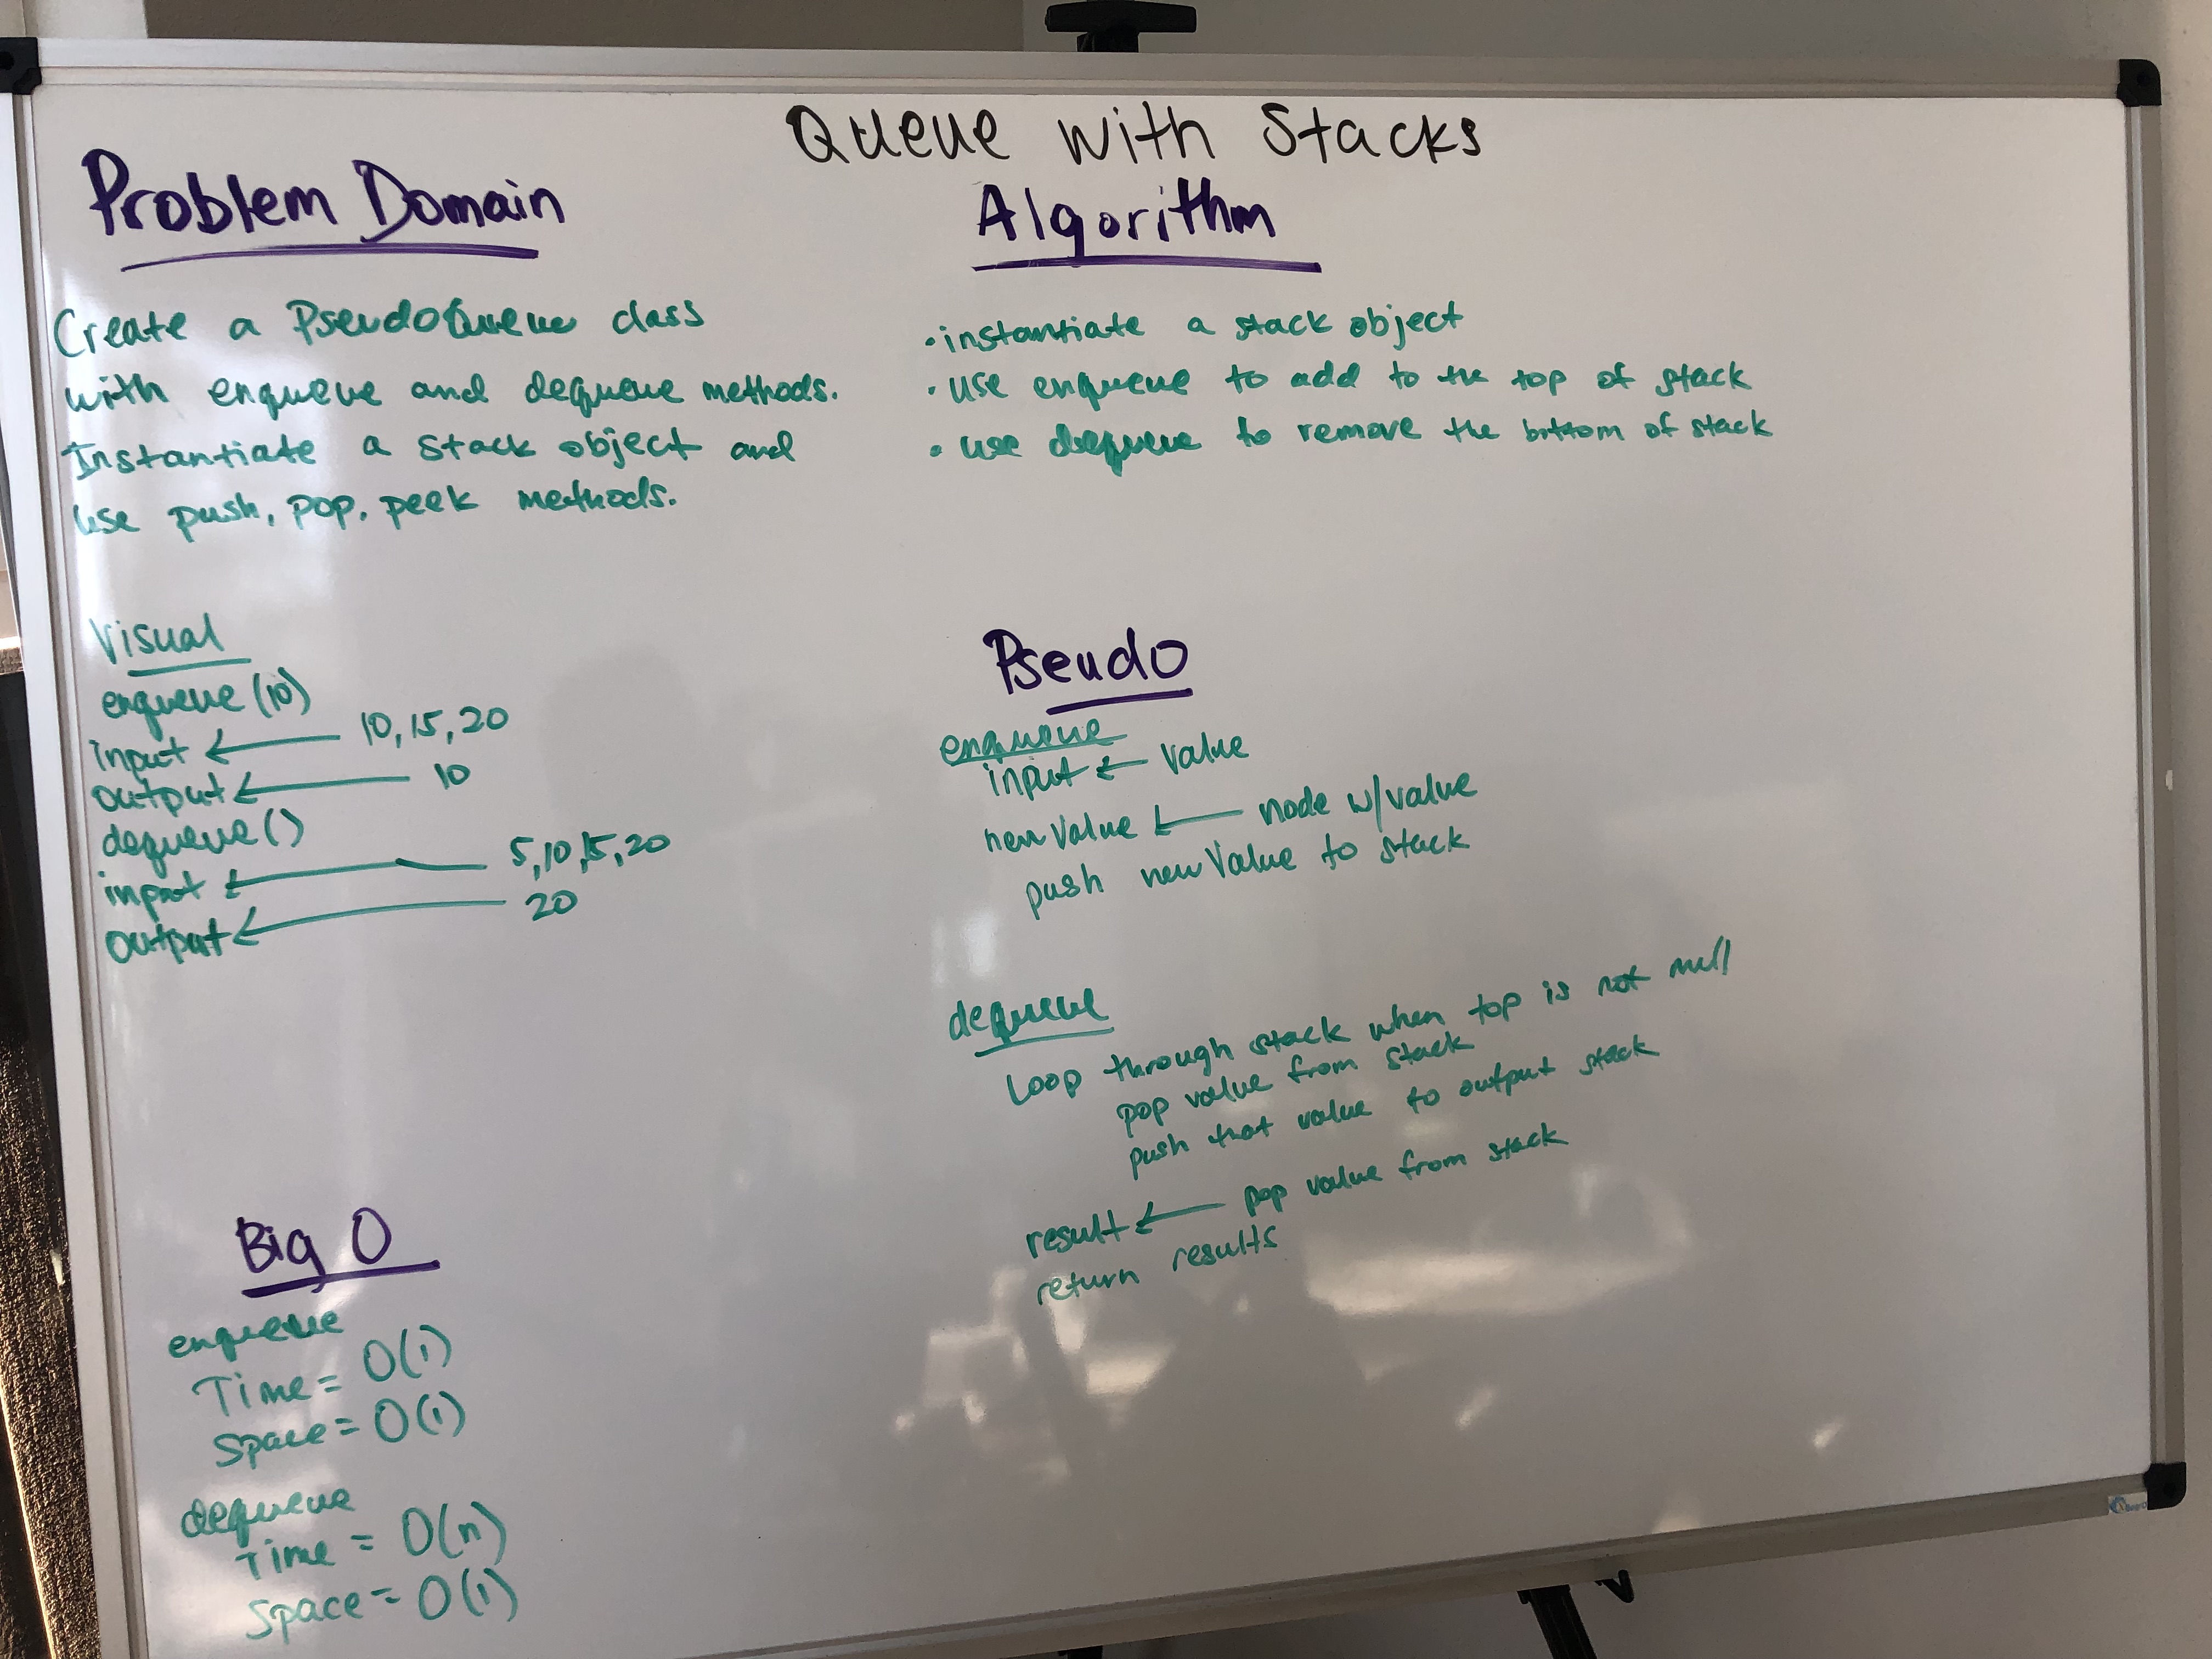 Queue with Stacks
Problem Domain
Create a PseudoQueue class
with enqueue and dequeue methods.
Instantiate a stack object and
use push, pop, peek methods.
Visual
enqueue (10)
input ← 10, 15, 20
output ← 10
dequeue ()
input ← 5, 10, 15, 20
output ← 20
Big O
enqueue
Time = O(1)
Space = O(1)
dequeue
Time = O(n)
Space = O(1)
Algorithm
• instantiate a stack object
• use enqueue to add to the top of stack
• use dequeue to remove the bottom of stack
Pseudo
enqueue
input ← value
new Value ← node w/value
push new Value to stack
dequeue
Loop through stack when top is not null
pop value from stack
push that value to output stack
result ← pop value from stack
return results